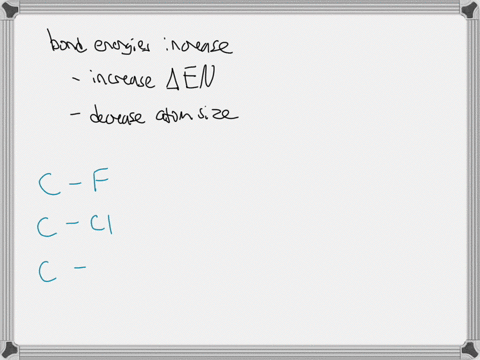 bond energies increase
- increase ΔEN
- decrease atom size
C - F
C - Cl
C -